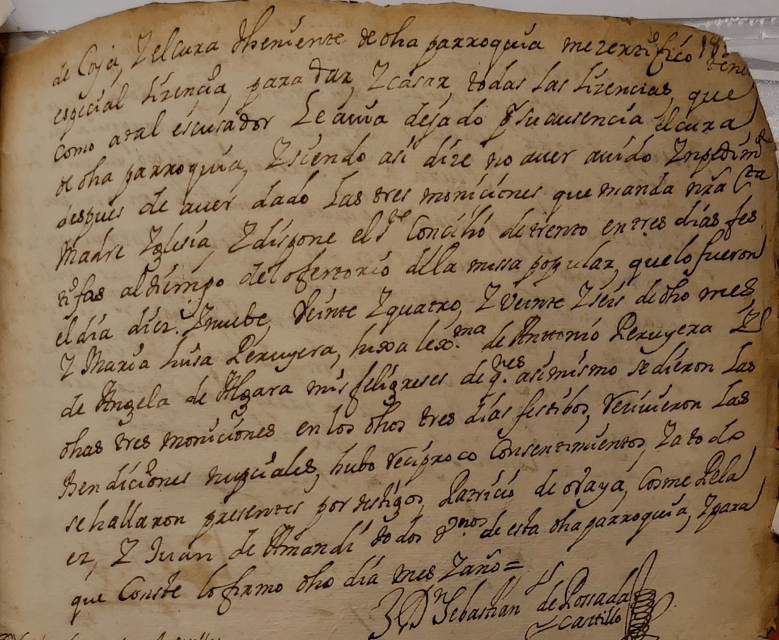 de Coja, Y el cura theniente de dha parroquia me zertifico tiene
especial lizencia, para dar, Y casar, todas las lizencias, que
como a tal escusador Le avia dejado pr su ausencia el cura
de dha parroquia, Y siendo asi dize no aver avido Ynpedimto
despues de aver dado Las tres moniciones que manda nra Sta
Madre Yglesia, Y dispone el Sto Concilio de trento en tres dias fes
tibos al tiempo del ofertorio de la missa popular, que lo fueron
el dia diez Y nuebe, Veinte Y quatro, Y Veinte Y seis de dho mes
Y Maria luisa Peruyera, hixa lexma de Anttonio Peruyera Y
de Angela de Algara mis feligreses de qnes asimismo se dieron Las
dhas tres moniciones en los dhos tres dias festibos, Recivieron Las
Bendiciones nupciales, hubo Reciproco Consentimiento, Y a todo
se hallaron presentes por testigos, Patricio de Yaya, Cosme Pela
ez, Y Juan de Amandi todos Vnos de esta dha parroquia, Y para
que Conste lo firmo dho dia mes Y año=
Dn Sebastian de Possada
Castillo